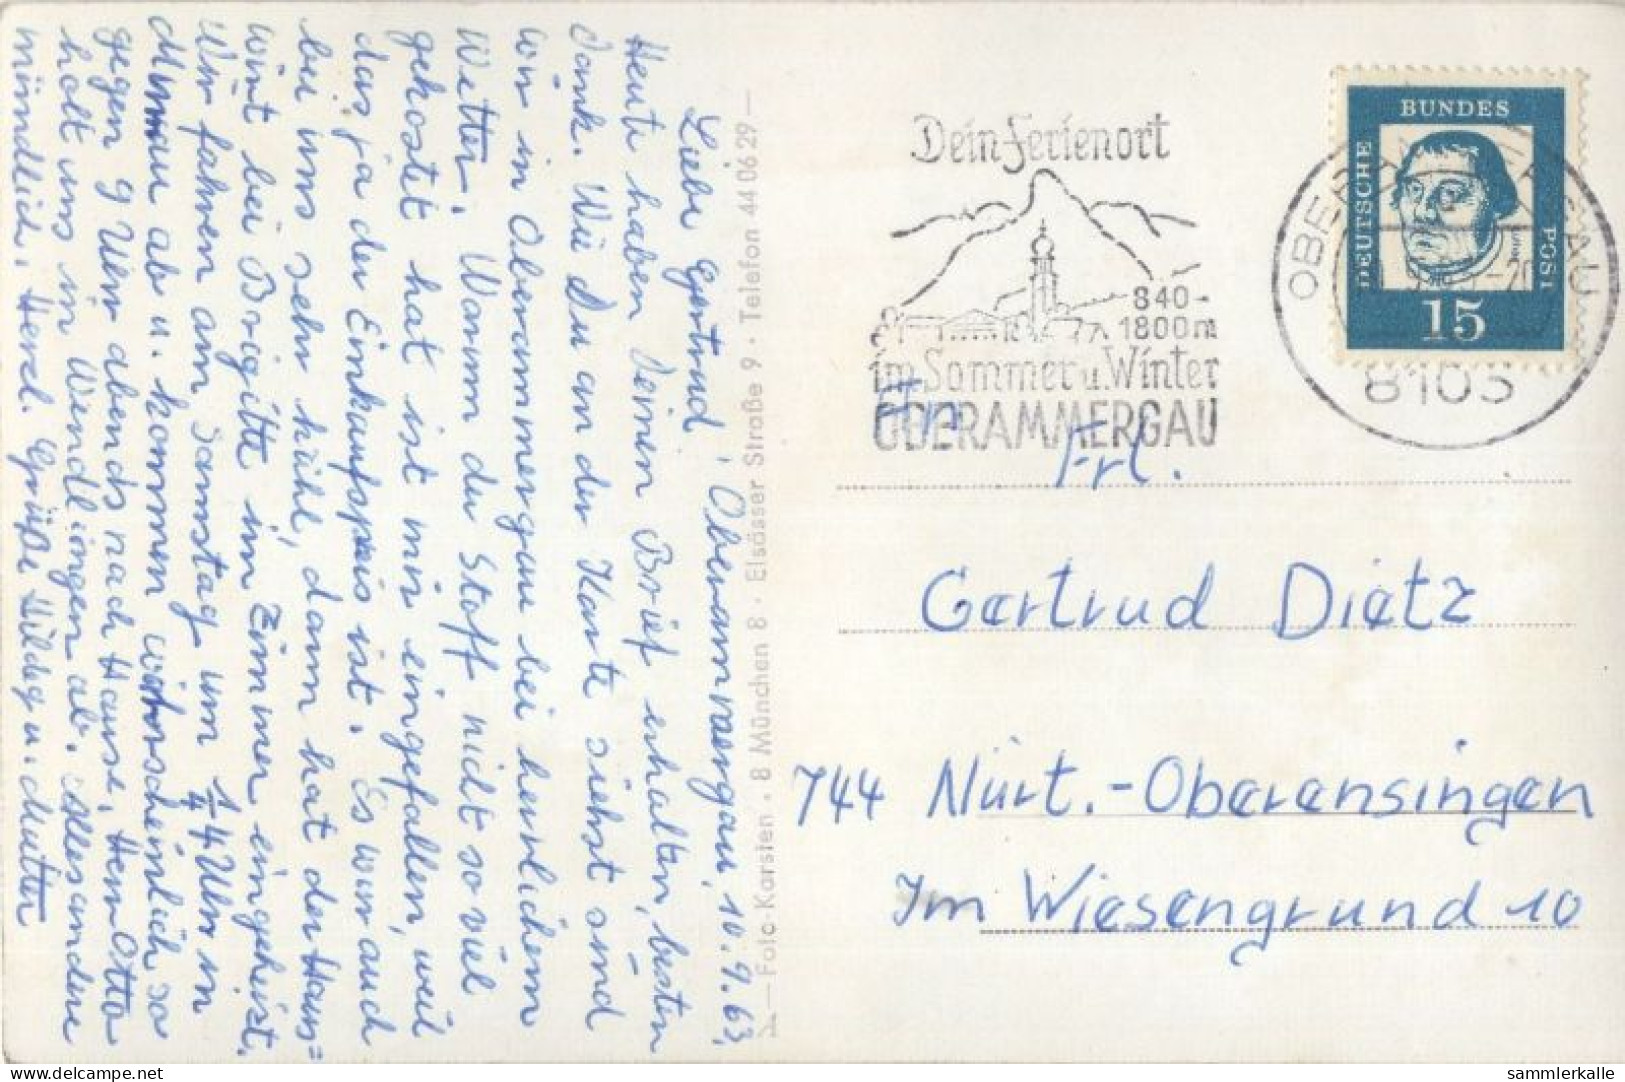 Oberammergau, 10.9.63.
Liebe Gertrud!
Heute haben Deinen Brief erhalten, besten
Dank. Wie Du an der Karte siehst sind
wir in Oberammergau bei herrlichem
Wetter. Warum der Stoff nicht so viel
gekostet hat ist mir eingefallen, weil
das ja der Einkaufspreis ist. Es war auch
bei uns sehr kühl, dann hat der Haus=
wirt bei Brigitte im Zimmer eingeheizt.
Wir fahren am Samstag um 1/4 4 Uhr in
ab u. kommen wahrscheinlich so
gegen 9 Uhr abends nach Hause. Herr Otto
holt uns in Wendlingen ab. Alles andere
mündlich. Herzl. Grüße Hildeg u. Mutter
Foto-Karsten · 8 München 8 · Elsässer Straße 9 · Telefon 44 06 29
Dein Ferienort
840-
1800m
im Sommer u. Winter
OBERAMMERGAU
DEUTSCHE
BUNDES
POST
15
OBERAMMERGAU
8103
Frl.
Gertrud Dietz
744 Nürt.-Oberensingen
Im Wiesengrund 10
sammlerkalle